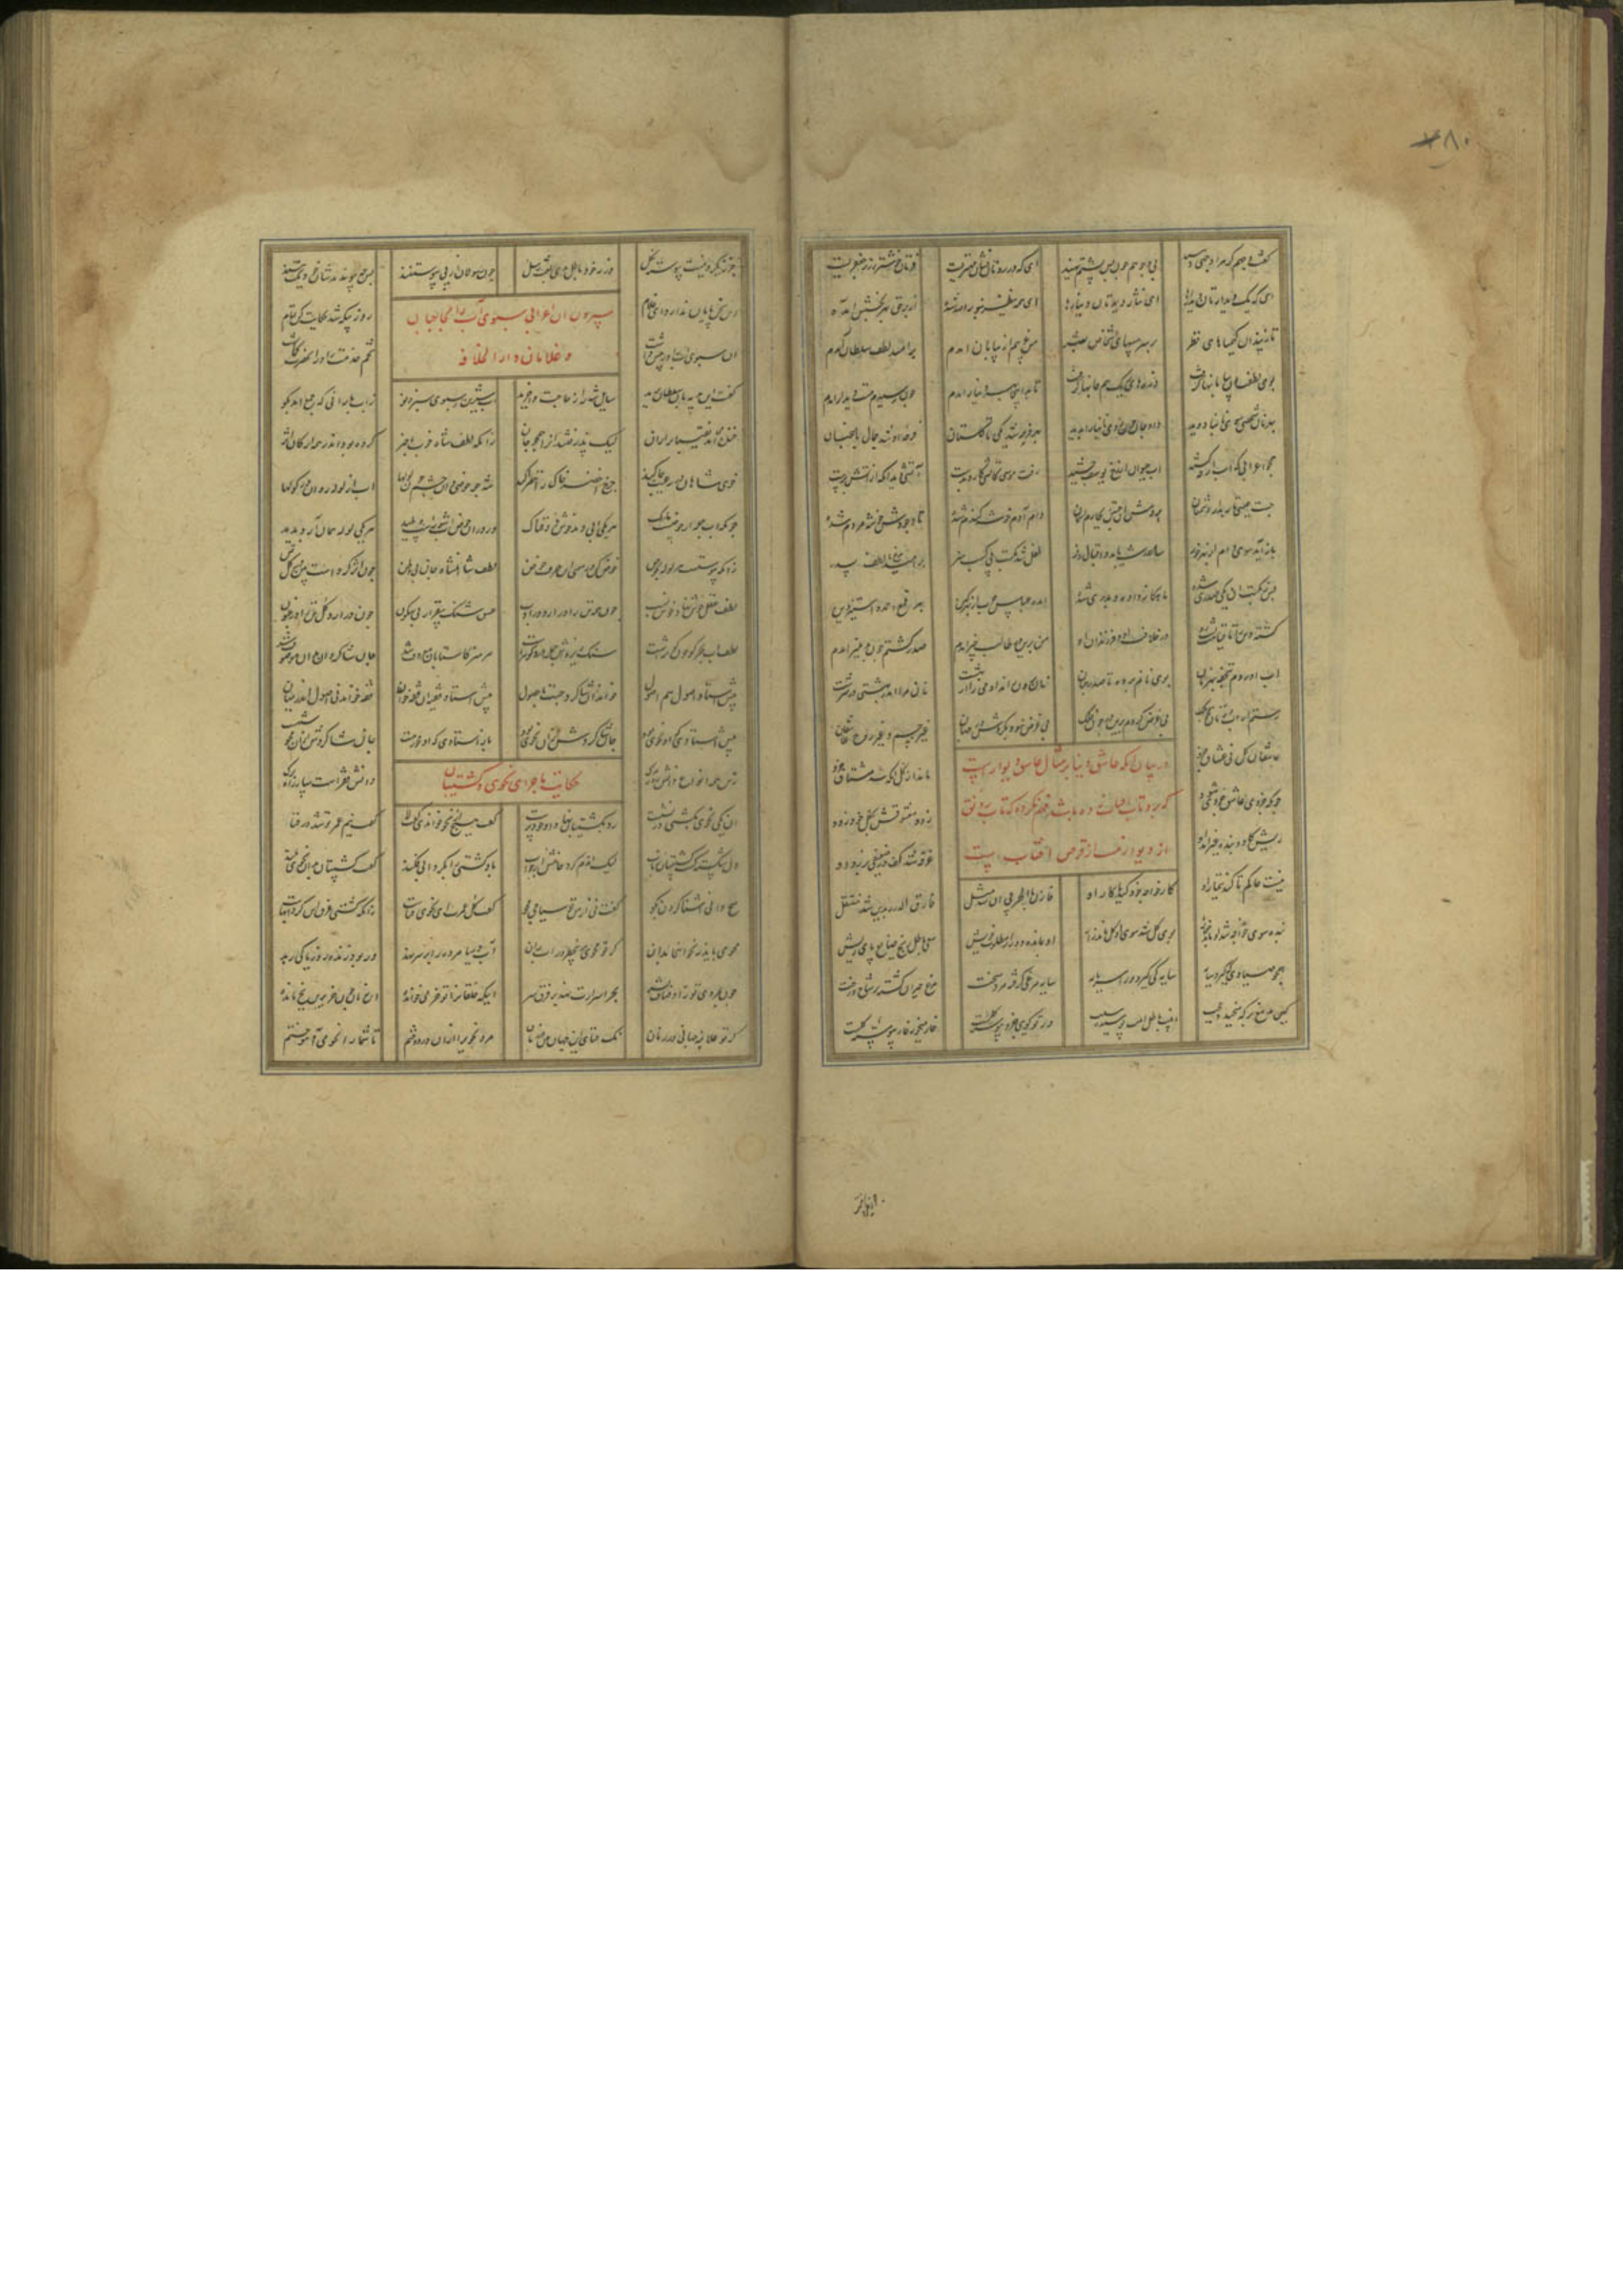 ۷۸۰
گفت وجهم گر مرا وجهی دهید بی وجوهم چون پس پشتم نهید ای که در روتان نشان مهتریت فرتان خوشتر ز زر جعفریت
ای که یک دیدارتان دیدارها ای نثار دیدتان دینارها ای همه ینظر بنور الله شده از بر حق بهر بخشش آمده
تا زنید آن کیمیاهای نظر بر سر مسهای اشخاص بشر من غریبم از بیابان آمدم بر امید لطف سلطان آمدم
بوی لطف او بیابانها گرفت ذرهای ریگ هم جانها گرفت تا بدین جا بهر دینار آمدم چون رسیدم مست دیدار آمدم
بهر نان شخصی سوی نانبا دوید داد جان چون حسن نانبا را بدید بهر فرجه شد یکی تا گلستان فرجه او شد جمال باغبان
همچو اعرابی که آب از چه کشید آب حیوان از رخ یوسف چشید رفت موسی کاتش آرد او بدست آتشی دید او که از آتش برست
جست عیسی تا رهد از دشمنان بردش آن جستن بچارم آسمان دام آدم خوشه گندم شده تا وجودش خوشه مردم شده
باز آید سوی دام از بهر خور ساعد شه یابد و اقبال و فر طفل شد مکتب پی کسب هنر بر امید مرغ با لطف پدر
پس ز مکتب آن یکی صدری شده ماهگانه داده و بدری شده آمده عباس حرب از بهر کین بهر قمع احمد و استیز دین
گشته دین را تا قیامت پشت و رو در خلافت او و فرزندان او من برین در طالب چیز آمدم صدر گشتم چون بدهلیز آمدم
آب آوردم بتحفه بهر نان بوی نانم برد تا صدر جنان نان برون راند آدمی را از بهشت نان مرا اندر بهشتی در سرشت
رستم از آب و ز نان همچون ملک بی غرض گردم برین در چون فلک بی غرض نبود بگردش در جهان غیر جسم و غیر جان عاشقان
عاشقان کل نی عشاق جزو ماند از کل آنکه شد مشتاق جزو
چونکه جزوی عاشق جزوی شود زود معشوقش بکل خود رود
ریش گاو و بنده غیر آمد او غرقه شد کف در ضعیفی در زد او
در بیان آنکه عاشق دنیا بر مثال عاشق دیواریست
که برو تاب آفتاب زده باشد فهم نکرد که تاب و رونق
از دیوار نیست از قرص آفتاب است
نیست حاکم تا کند تیمار او کار خواجه خود کند یا کار او فازن بالحره پی این شد مثل فاسرق الدره بدین شد منتقل
بنده سوی خواجه شد او ماند زار بوی گل شد سوی گل او ماند خار او بمانده دور از مطلوب خویش سعی باطل رنج ضایع پای ریش
همچو صیادی که گیرد سایه سایه کی گردد ورا سرمایه سایه مرغی گرفته مرد سخت مرغ حیران گشته بر شاخ درخت
کین مدمغ بر که میخندد عجب اینت باطل اینت پوسیده سبب ور تو گویی جزو پیوسته کلست خار میخور خار پیوسته گلست
جز ز یکرو نیست پیوسته بکل ورنه خود باطل بدی بعث رسل چون رسولان از پی پیوستنند پس چه پیوندندشان چون یکتنند
این سخن پایان ندارد ای غلام روز بیگه شد حکایت کن تمام
سپردن آن اعرابی سبوی آب را بحاجبان
و غلامان دار الخلافه
آن سبوی آب را در پیش داشت تخم خدمت را در آن حضرت بکاشت
گفت این هدیه بدان سلطان برید سایل شه را ز حاجت واخرید آب شیرین و سبوی سبز و نو ز آب بارانی که جمع آمد بگو
خنده می آمد نقیبان را از آن لیک پذرفتند آن را همچو جان زانکه لطف شاه خوب با خبر کرده بود اندر همه ارکان اثر
خوی شاهان در رعیت جا کند چرخ اخضر خاک را خضرا کند شه چو حوضی دان حشم چون لولها آب از لوله روان در گولها
چونکه آب جمله از حوضیست پاک هر یکی آبی دهد خوش ذوقناک ور در آن حوض آب شورست و پلید هر یکی لوله همان آرد پدید
زانکه پیوستست هر لوله بحوض خوض کن در معنی این حرف خوض لطف شاهنشاه جان بی وطن چون اثر کرده است اندر کل تن
لطف عقل خوش نهاد خوش نسب چون همه تن را در آرد در ادب عشق شنگ بی قرار بی سکون چون در آرد کل تن را در جنون
لطف آب بحر کو چون کوثرست سنگ ریزه ش جمله در و گوهرست هر هنر که استا بدان معروف شد جان شاگردان بدان موصوف شد
پیش استاد اصولی هم اصول خواند آن شاگرد چست با حصول پیش استاد فقیه آن فقه خوان فقه خواند نی اصول اندر بیان
پیش استادی که او نحوی بود جان شاگردش ازو نحوی شود باز استادی که او محو رهست جان شاگردش ازو محو شهست
زین همه انواع دانش روز مرگ دانش فقرست ساز راه و برگ
حکایت ماجرای نحوی و کشتیبان
آن یکی نحوی بکشتی در نشست رو بکشتیبان نهاد آن خود پرست گفت هیچ از نحو خواندی گفت لا گفت نیم عمر تو شد در فنا
دل شکسته گشت کشتیبان ز تاب لیک آن دم کرد خامش از جواب باد کشتی را بگردابی فکند گفت کشتیبان بدان نحوی بلند
هیچ دانی آشنا کردن بگو گفت نی از من تو سباحی مجو گفت کل عمرت ای نحوی فناست زانکه کشتی غرق این گردابهاست
محو می باید نه نحو اینجا بدان گر تو محوی بی خطر در آب ران آب دریا مرده را بر سر نهد ور بود زنده ز دریا کی رهد
چون بمردی تو ز اوصاف بشر بحر اسرارت نهد بر فرق سر ای که خلقان را تو خر می خوانده این زمان چون خر برین یخ مانده
گر تو علامه زمانی در زمان نک فنای این جهان بین وین زمان مرد نحوی را از آن در دوختیم تا شما را نحو محو آموختیم